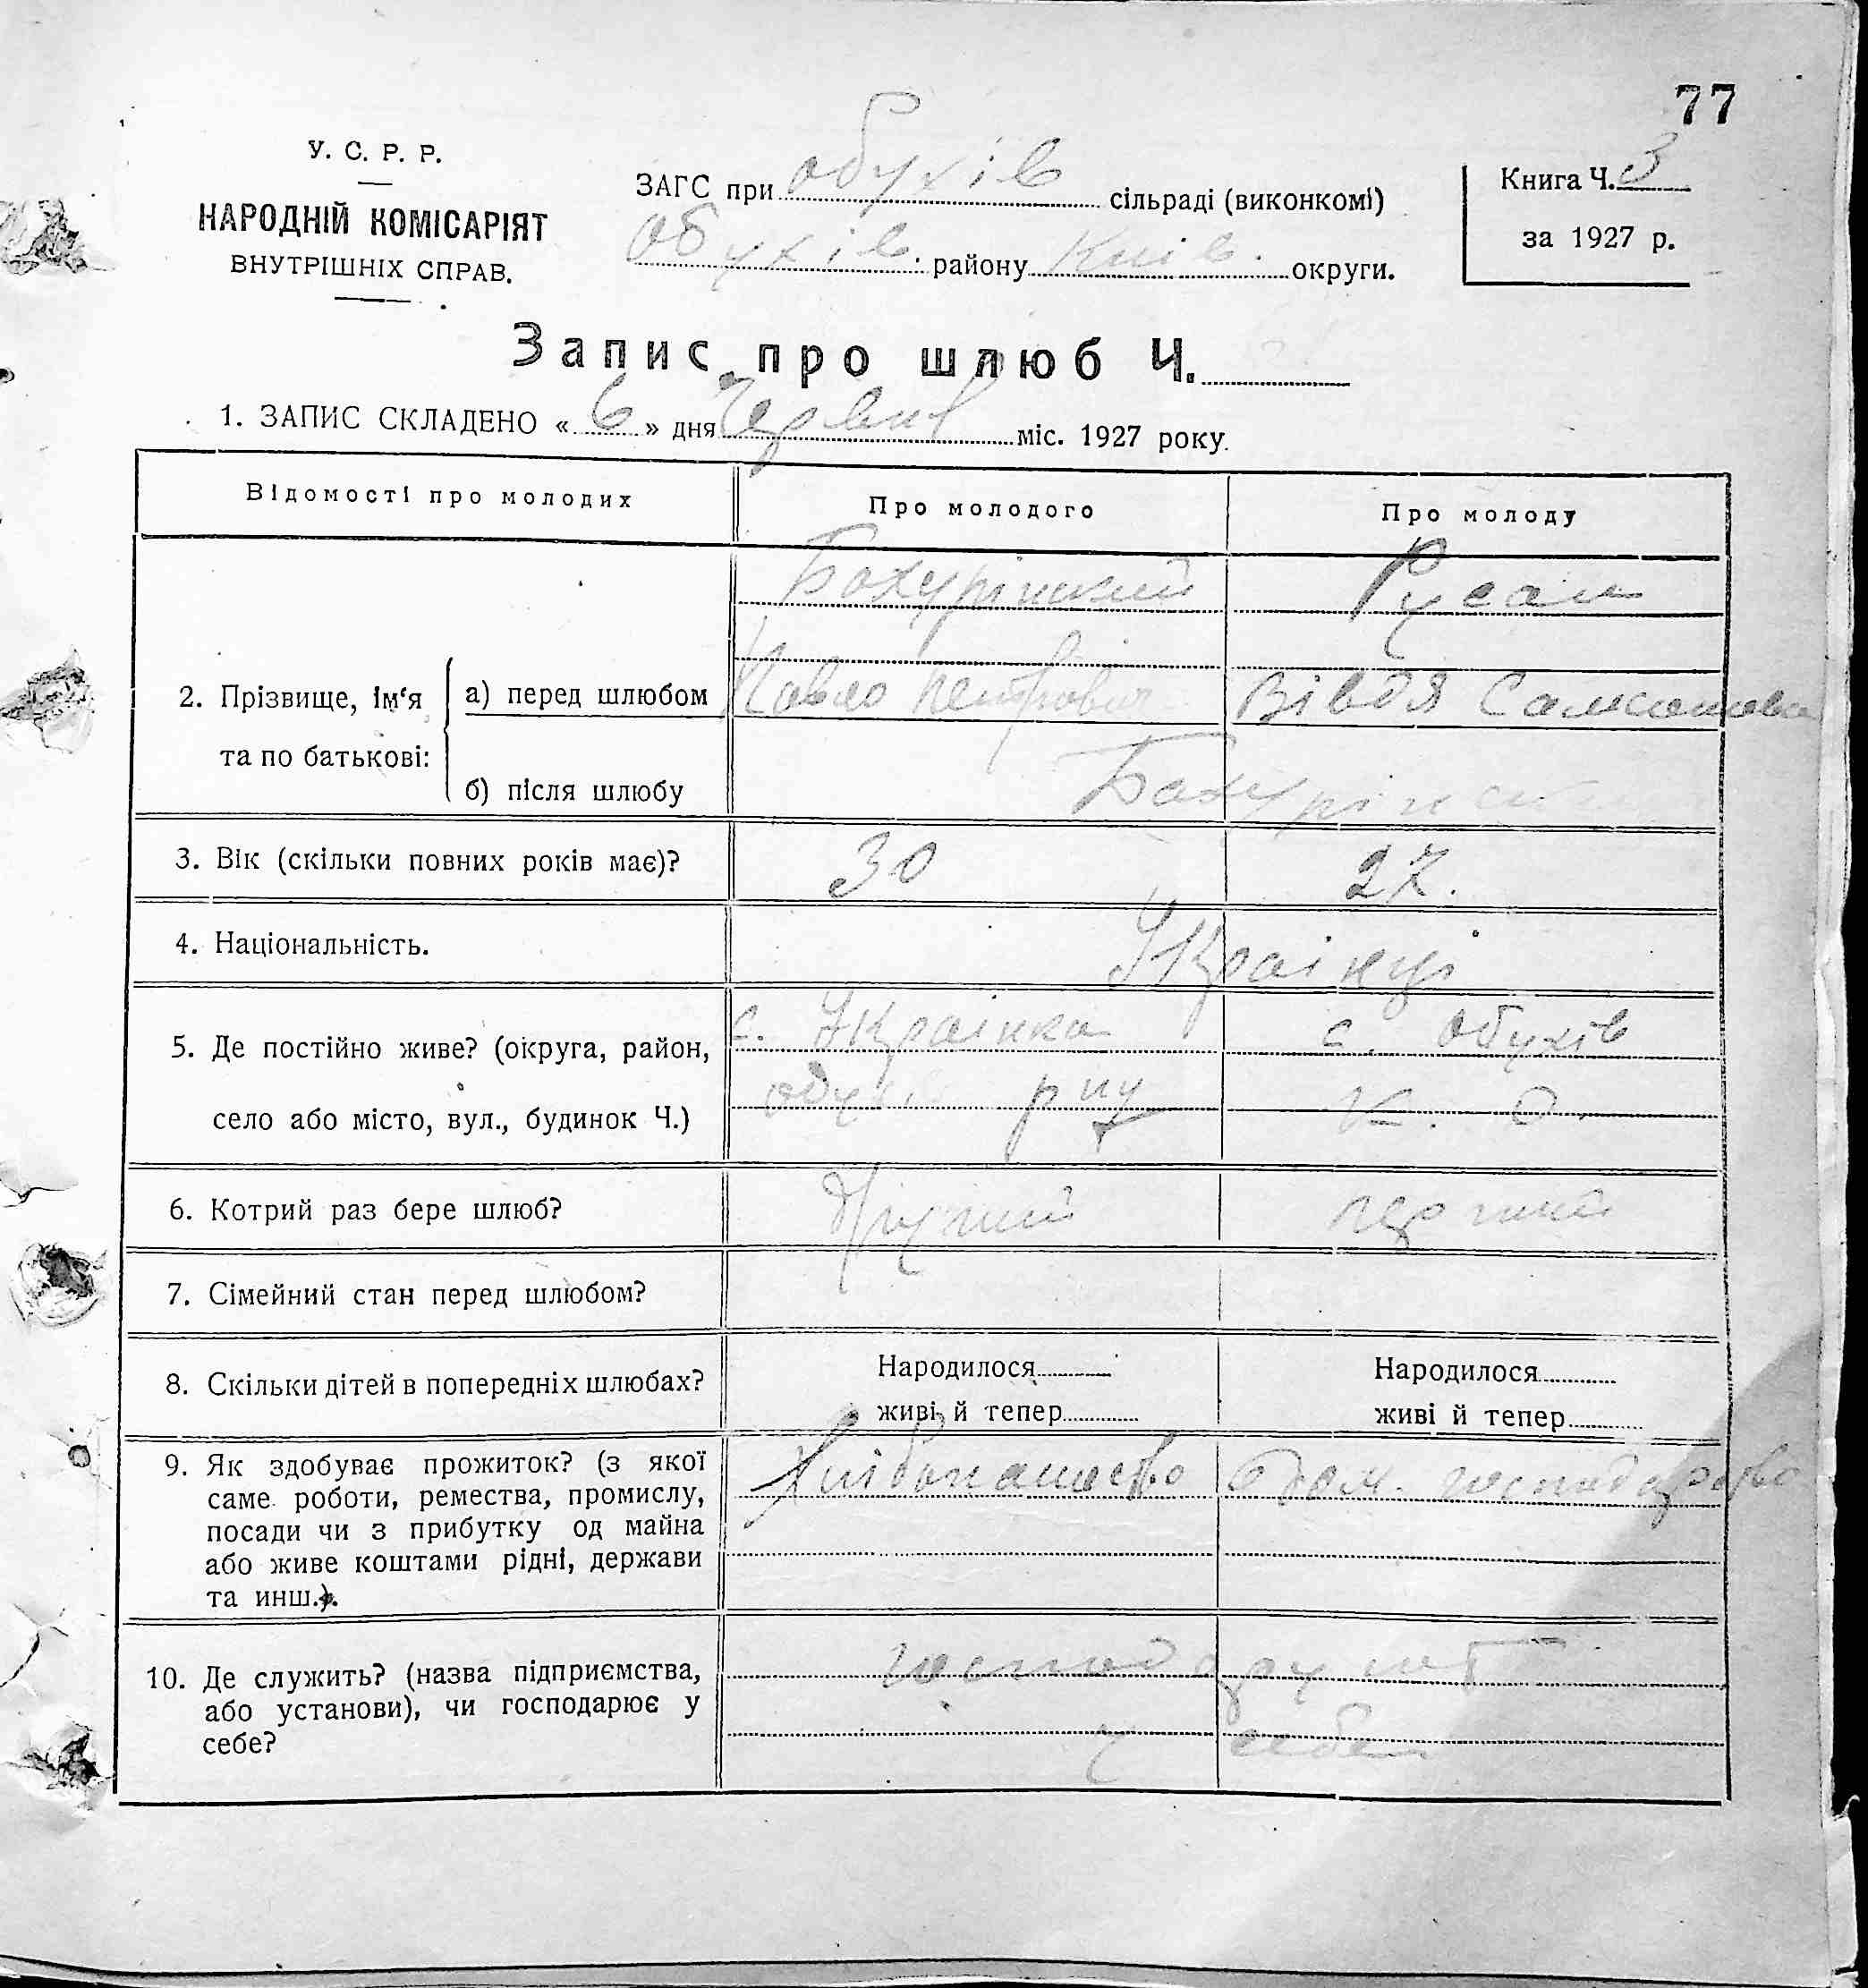 77
У. С. Р. Р.
НАРОДНІЙ КОМІСАРІЯТ
ВНУТРІШНІХ СПРАВ.
ЗАГС при Обухів сільраді (виконкомі)
Обухів. району Київ. округи.
Книга Ч. 3
за 1927 р.
Запис про шлюб Ч.
1. ЗАПИС СКЛАДЕНО « 6 » дня Червня міс. 1927 року.
Відомості про молодих Про молодого Про молоду
2. Прізвище, ім‘я та по батькові:
а) перед шлюбом
Бохурінский Русан
Павло Петрович Вівдя Самсонова
б) після шлюбу
Бохурінск
3. Вік (скільки повних років має)? 30 27.
4. Національність. Українці
5. Де постійно живе? (округа, район, с. Українка с. Обухів
село або місто, вул., будинок Ч.) Обухів рну К. О.
6. Котрий раз бере шлюб? Другий перший
7. Сімейний стан перед шлюбом?
8. Скільки дітей в попередніх шлюбах? Народилося Народилося
живі й тепер живі й тепер
9. Як здобуває прожиток? (з якої
саме роботи, ремества, промислу,
посади чи з прибутку од майна
або живе коштами рідні, держави
та инш.).
Хліборобство дом. господарство
10. Де служить? (назва підприємства,
або установи), чи господарює у
себе?
господарують
у себе